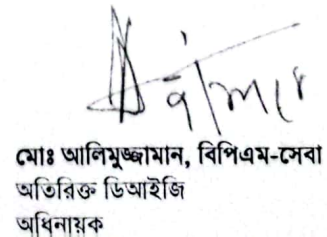 মোঃ আলিমুজ্জামান, বিপিএম-সেবা
অতিরিক্ত ডিআইজি
অধিনায়ক